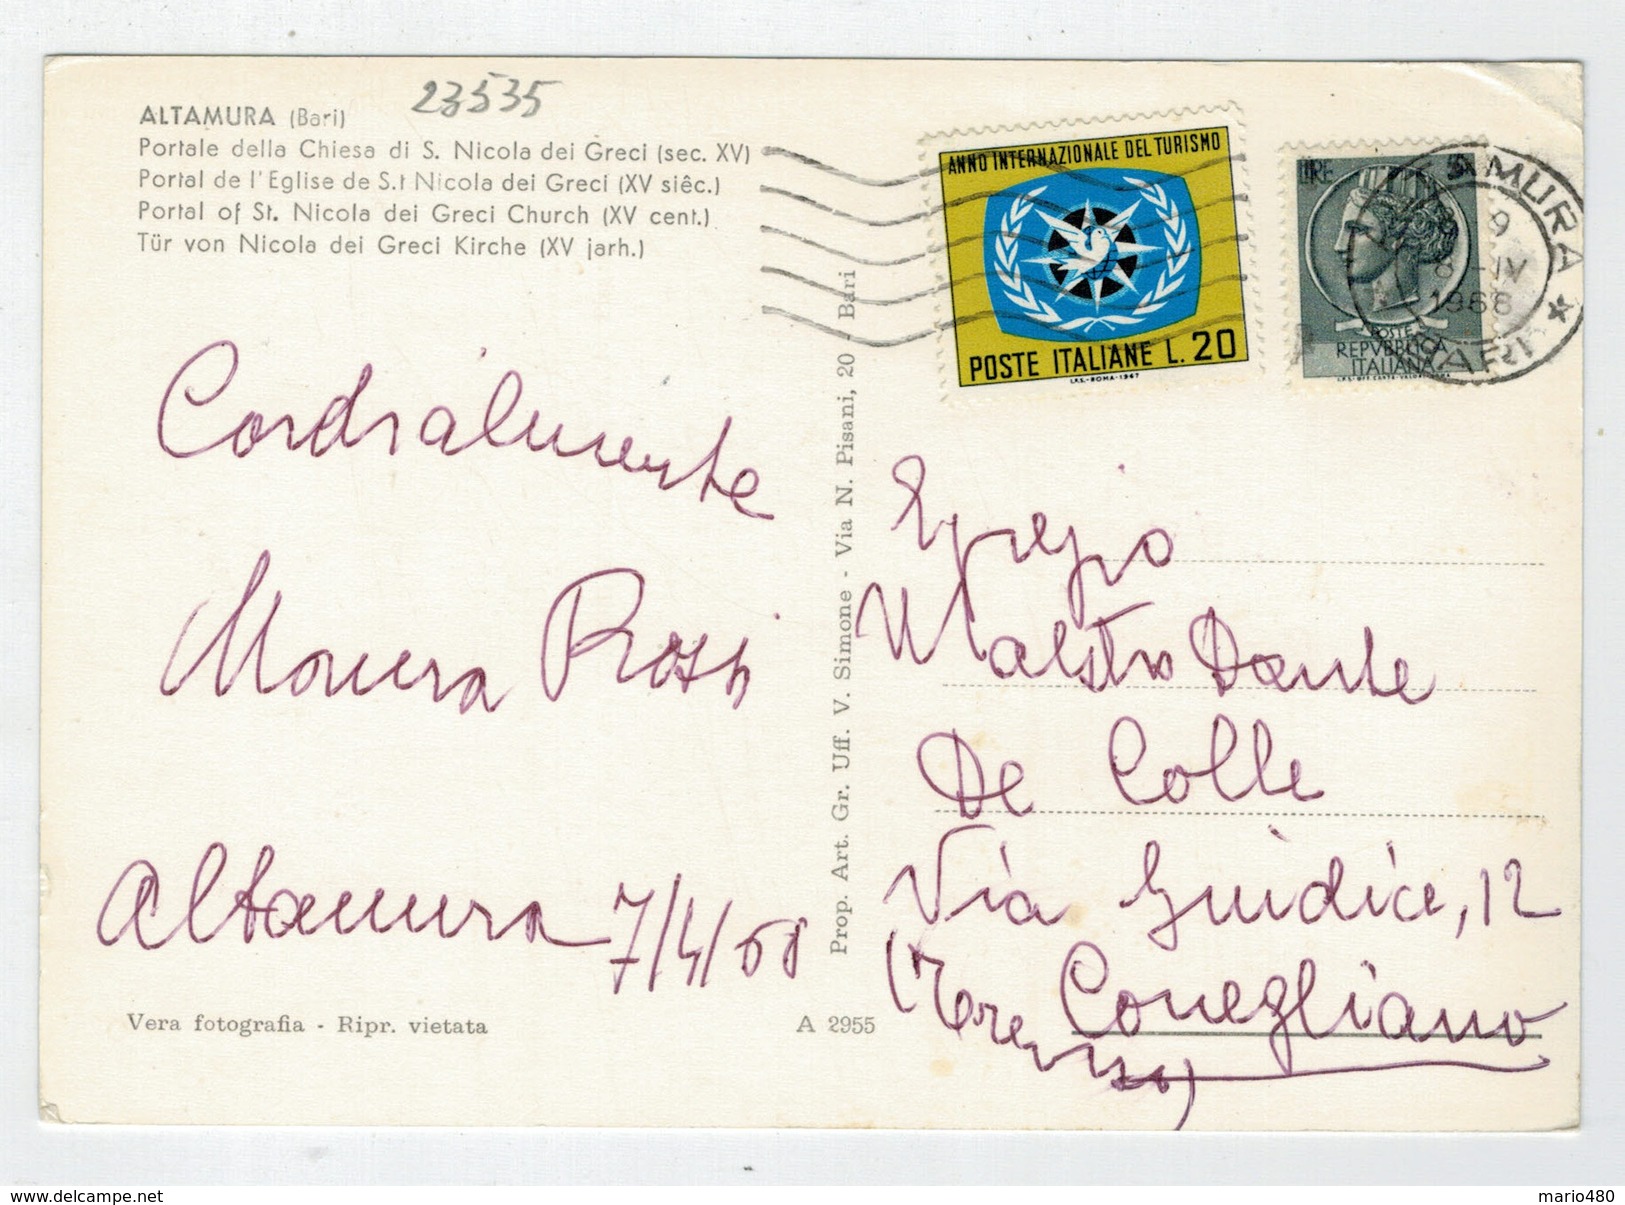 23535
ALTAMURA (Bari)
Portale della Chiesa di S. Nicola dei Greci (sec. XV)
Portal de l'Eglise de S.t Nicola dei Greci (XV siêc.)
Portal of St. Nicola dei Greci Church (XV cent.)
Tür von Nicola dei Greci Kirche (XV jarh.)
ANNO INTERNAZIONALE DEL TURISMO
POSTE ITALIANE L. 20
I.P.S.-ROMA-1967
LIRE 5
POSTE
REPVBBLICA
ITALIANA
AMURA
9
-IV
1968
BARI
Cordialmente
Rossi
Altamura 7/4/68
Prop. Art. Gr. Uff. V. Simone - Via N. Pisani, 20 - Bari
Egregio
Maestro Dante
De Colle
Via Giudice, 12
Conegliano
(Treviso)
Vera fotografia - Ripr. vietata
A 2955
delcampe.net
mario480